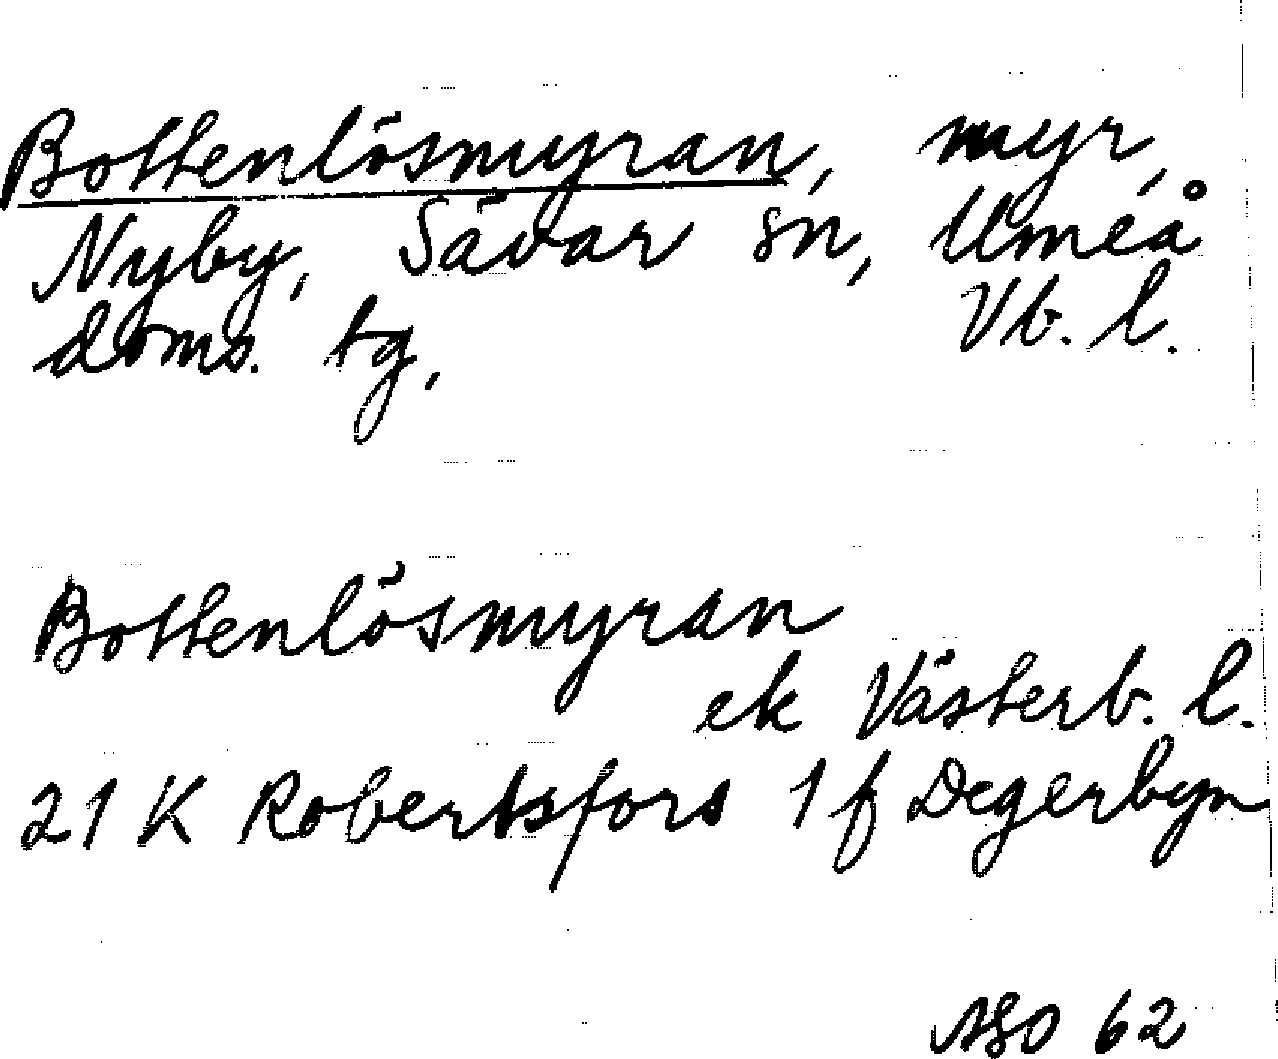 Bottenlösmyran, myr,
Nyby, Sävar sn, Umeå
doms. tg, Vb. l.
Bottenlösmyran
ek Västerb. l.
21 K Robertsfors 1 f Degerbyn
ASO 62